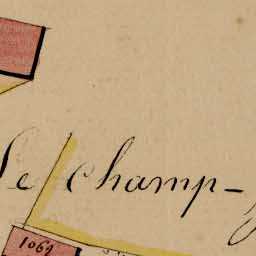 Le champ-
1069